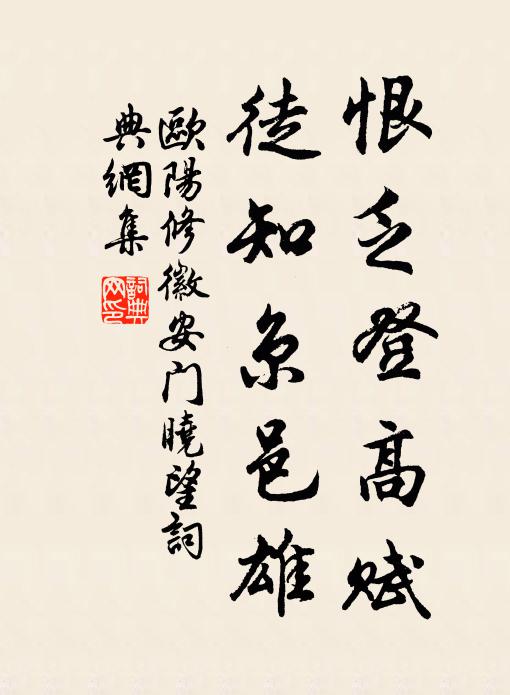 恨乏登高赋
徒知京邑雄
歐陽修徽安门曉望詞
典網集
詞典网印